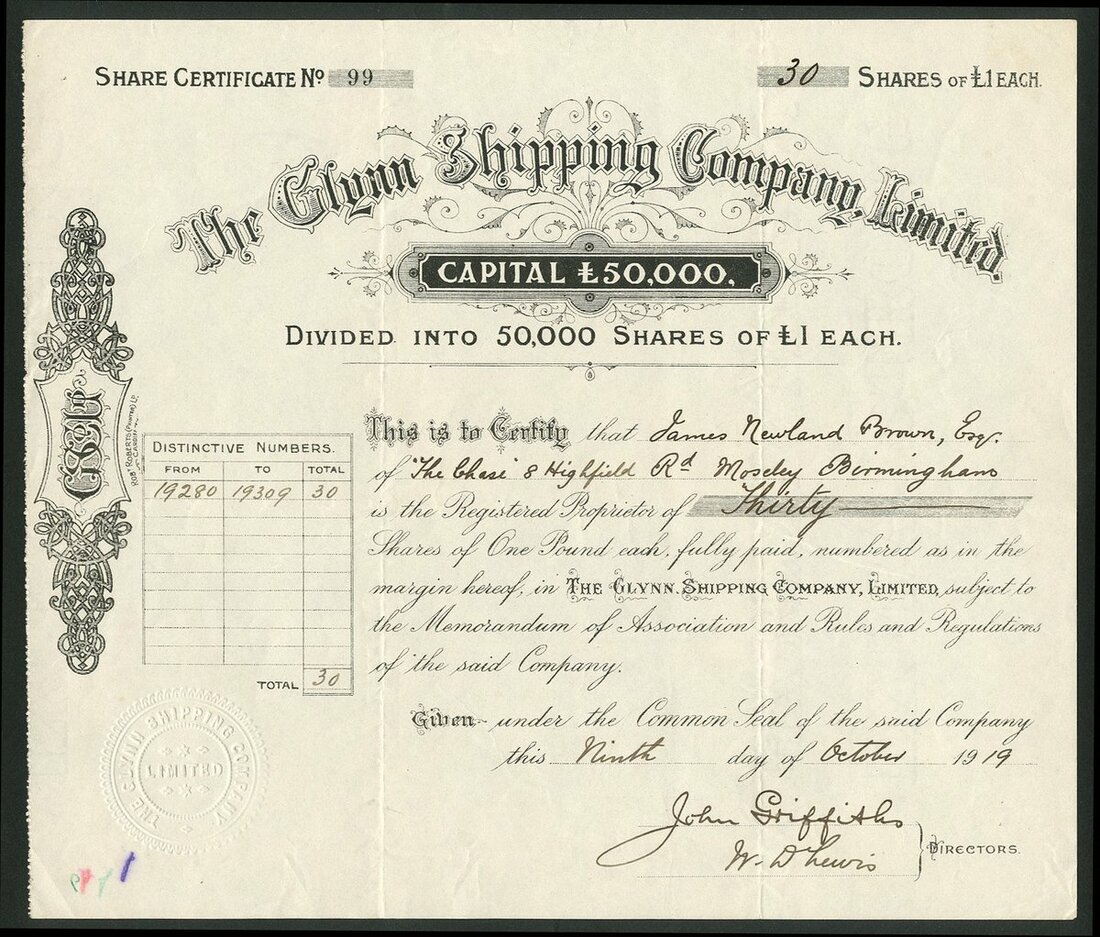 SHARE CERTIFICATE No 99
30 SHARES OF £1 EACH.
The Glynn Shipping Company, Limited.
CAPITAL £50,000.
DIVIDED INTO 50,000 SHARES OF £1 EACH.
This is to Certify that James Newland Brown, Esqr.
of "The Chase" 8 Highfield Rd Moseley Birmingham
is the Registered Proprietor of Thirty
Shares of One Pound each, fully paid, numbered as in the
margin hereof, in THE GLYNN SHIPPING COMPANY, LIMITED, subject to
the Memorandum of Association and Rules and Regulations
of the said Company.
DISTINCTIVE NUMBERS.
FROM TO TOTAL
19280 19309 30
TOTAL 30
Given under the Common Seal of the said Company
this Ninth day of October 1919
John Griffiths
W. D Lewis
DIRECTORS.
THE GLYNN SHIPPING COMPANY
LIMITED